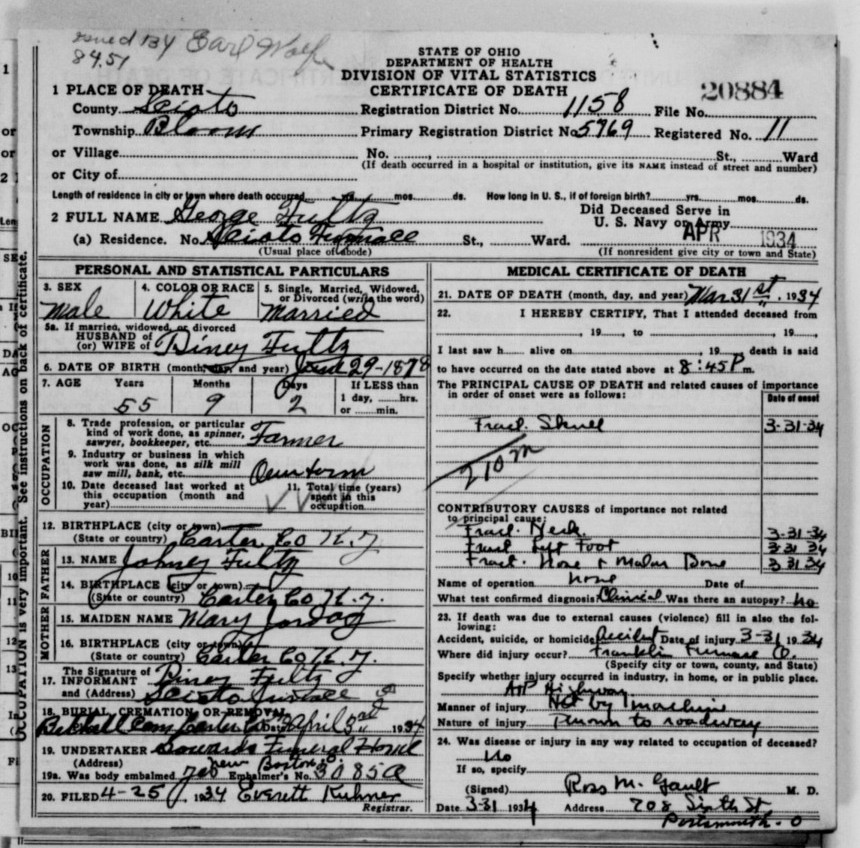 issued by Earl Wolfe
8451
STATE OF OHIO
DEPARTMENT OF HEALTH
DIVISION OF VITAL STATISTICS
CERTIFICATE OF DEATH
20884
1 PLACE OF DEATH
County Scioto Registration District No. 1158 File No.
Township Bloom Primary Registration District No. 5769 Registered No. 11
or Village No. , St., Ward
(If death occurred in a hospital or institution, give its NAME instead of street and number)
or City of
Length of residence in city or town where death occurred yrs. mos. ds. How long in U. S., if of foreign birth? yrs. mos. ds.
2 FULL NAME George Fultz Did Deceased Serve in
U. S. Navy or Army
(a) Residence. No. Scioto Furnace St., Ward. APR 1934
(Usual place of abode) (If nonresident give city or town and State)
PERSONAL AND STATISTICAL PARTICULARS
3. SEX Male
4. COLOR OR RACE White
5. Single, Married, Widowed, or Divorced (write the word) Married
5a. If married, widowed, or divorced
HUSBAND of
(or) WIFE of Diney Fultz
6. DATE OF BIRTH (month, day, and year) June 29-1878
7. AGE Years Months Days If LESS than
1 day, hrs.
or min.
55 9 2
OCCUPATION
8. Trade, profession, or particular
kind of work done, as spinner,
sawyer, bookkeeper, etc. Farmer
9. Industry or business in which
work was done, as silk mill
saw mill, bank, etc. Own farm
10. Date deceased last worked at
this occupation (month and
year)
11. Total time (years)
spent in this
occupation
12. BIRTHPLACE (city or town)
(State or country) Carter Co Ky.
FATHER
13. NAME Johney Fultz
14. BIRTHPLACE (city or town)
(State or country) Carter Co Ky.
MOTHER
15. MAIDEN NAME Mary
16. BIRTHPLACE (city or town)
(State or country) Carter Co Ky.
The Signature of
17. INFORMANT Diney Fultz
and (Address) Scioto Furnace O
18. BURIAL, CREMATION OR REMOVAL
Cem Carter Co Date April 3rd 1934
19. UNDERTAKER Sowards Funeral Home
(Address) New Boston O.
19a. Was body embalmed yes Embalmer's No. 3085A
20. FILED 4-25, 1934 Everett Kuhner
Registrar.
MEDICAL CERTIFICATE OF DEATH
21. DATE OF DEATH (month, day, and year) Mar 31st, 1934
22. I HEREBY CERTIFY, That I attended deceased from
, 19 , to , 19 ,
I last saw h alive on , 19 death is said
to have occurred on the date stated above at 8:45P m.
The PRINCIPAL CAUSE OF DEATH and related causes of importance
in order of onset were as follows:
Date of onset
Fracl. Skull 3-31-34
210m
CONTRIBUTORY CAUSES of importance not related
to principal cause:
Fracl. Neck 3-31-34
Fracl Left Foot 3 31 34
Fracl. Nose & Malar Bone 3 31 34
Name of operation none Date of
What test confirmed diagnosis? Clinical Was there an autopsy? no
23. If death was due to external causes (violence) fill in also the following:
Accident, suicide, or homicide? Accident Date of injury 3-31 1934
Where did injury occur? Franklin Furnace O.
(Specify city or town, county, and State)
Specify whether injury occurred in industry, in home, or in public place.
Highway
Manner of injury Hit by machine
Nature of injury thrown to roadway
24. Was disease or injury in any way related to occupation of deceased?
No
If so, specify
(Signed) Ross M. Gault M. D.
Date 3-31 1934 Address 708 Sixth St
Portsmouth - O
OCCUPATION is very important. See instructions on back of certificate.